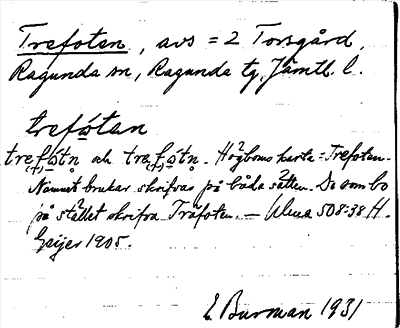 Trefoten, avs = 2 Torsgård,
Ragunda sn, Ragunda tg, Jämtl. l.
trefótan
trefótn och trefotn. Högboms karta: Trefoten.
Namnet brukar skrifvas på båda sätten. De som bo
på stället skrifva Träfoten. — Ulma 508:38 H.
Geijer 1905.
E Burman 1931